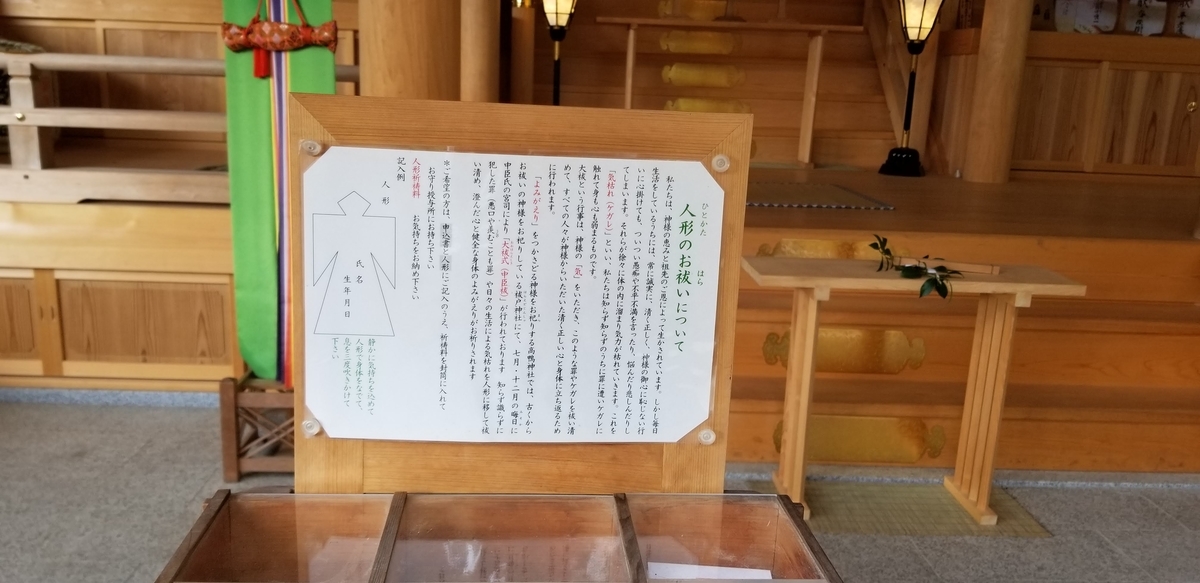 人形のお祓いについて
ひとかた
はら
私たちは、神様の恵みと祖先のご恩によって生かされています。しかし毎日
生活をしているうちには、常に誠実に、清く正しく、神様の御心に恥じない行
いに心掛けても、ついつい愚痴や不平不満を言ったり、悩んだり悲しんだりし
てしまいます。それらが徐々に体の内に溜まり気力が枯れていきます。これを
「気枯れ(ケガレ)」といい、私たちは知らず知らずのうちに罪に遭いケガレに
触れて身も心も弱まるものです。
大祓という行事は、神様の「気」をいただき、このような罪やケガレを祓い清
めて、すべての人々が神様からいただいた清く正しい心と身体に立ち返るため
に行われます。
「よみがえり」をつかさどる神様をお祀りする高鴨神社では、古くから
お祓いの神様をお祀りしている祓戸神社にて、七月・十二月の晦日に
中臣氏の宮司により「大祓式(中臣祓)」が行われております 知らず識らずに
犯した罪(悪口や羨むことも罪)や日々の生活による気枯れを人形に移して祓
い清め、澄んだ心と健全な身体のよみがえりがお祈りされます
※ご希望の方は、申込書と人形にご記入のうえ、祈祷料を封筒に入れて
お守り授与所にお持ち下さい
人形祈祷料 お気持ちをお納め下さい
記入例
人形
氏名
生年月日
静かに気持ちを込めて
人形で身体をなでて、
息を三度吹きかけて
下さい